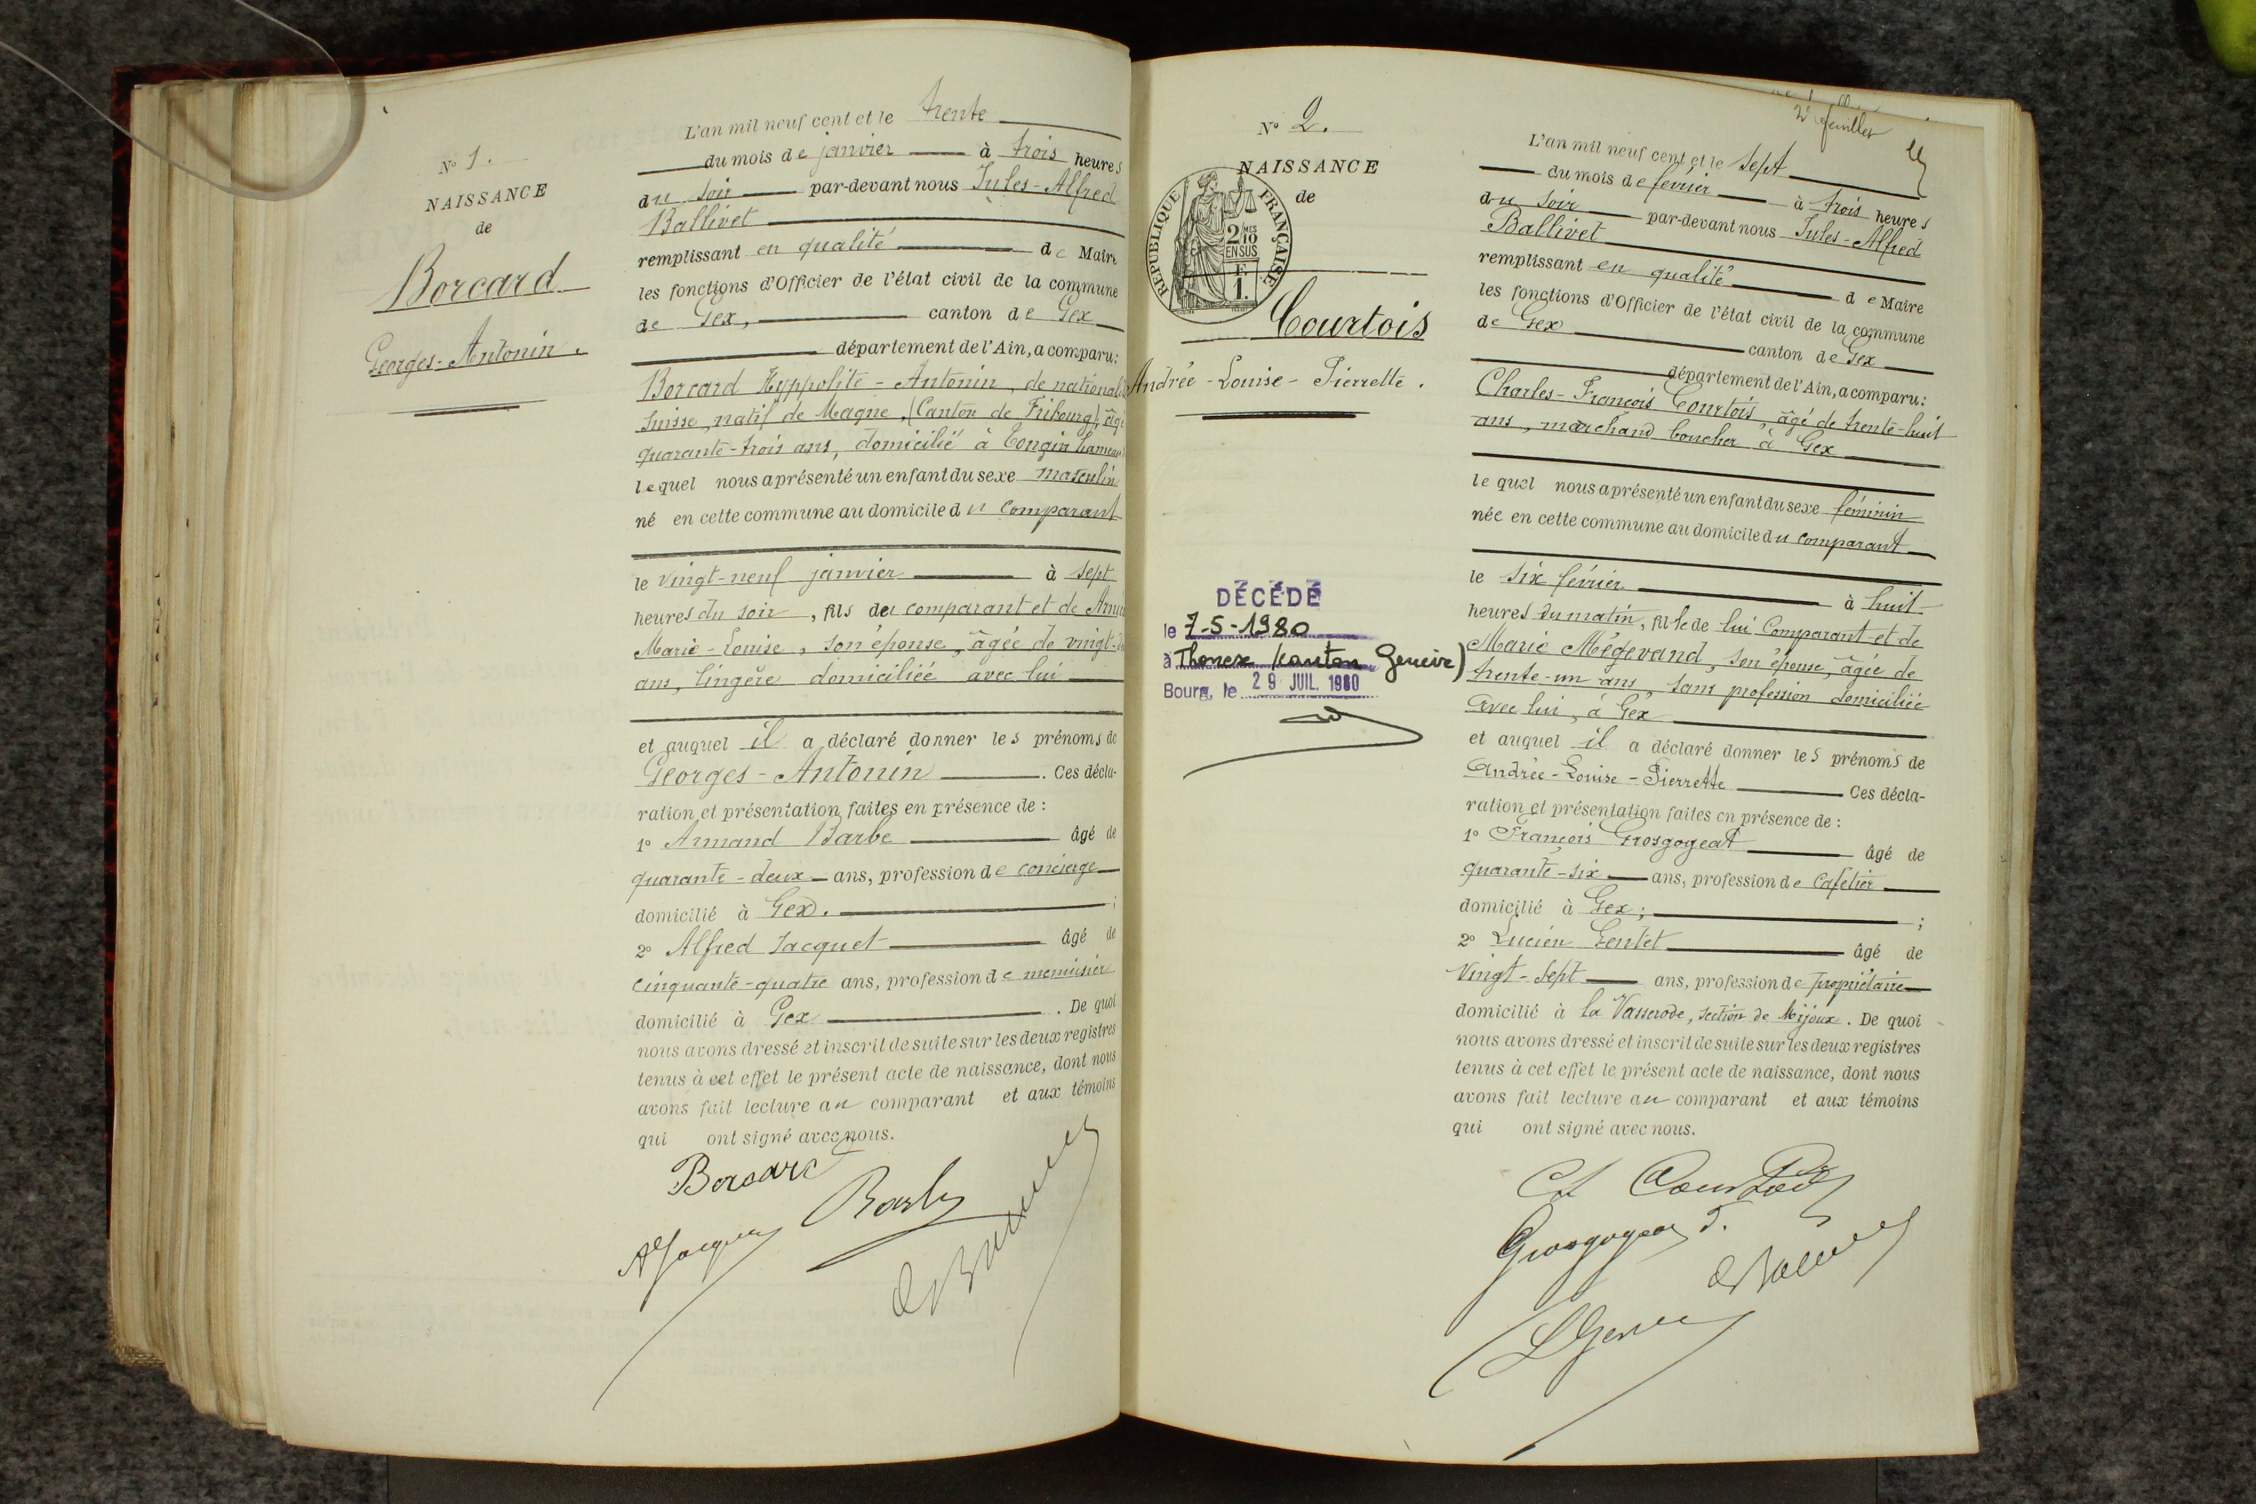 N° 1.
NAISSANCE
de
Borcard
Georges-Antonin.
L'an mil neuf cent et le trente
du mois de janvier à trois heures
du soir par-devant nous Jules-Alfred
Ballivet
remplissant en qualité de Maire
les fonctions d'Officier de l'état civil de la commune
de Gex, canton de Gex
département de l'Ain, a comparu:
Borcard Hyppolite-Antonin, de national
Suisse, natif de Magne, (Canton de Fribourg), âgé
quarante-trois ans, domicilié à Tougin hameau
lequel nous a présenté un enfant du sexe masculin
né en cette commune au domicile du comparant
le vingt-neuf janvier à sept
heures du soir, fils de comparant et de
Marie-Louise, son épouse, âgée de vingt-
ans, lingère domiciliée avec lui
et auquel il a déclaré donner les prénoms de
Georges-Antonin. Ces décla-
ration et présentation faites en présence de :
1° Armand Barbe âgé de
quarante-deux ans, profession de concierge
domicilié à Gex. ;
2° Alfred Jacquet âgé de
cinquante-quatre ans, profession de menuisier
domicilié à Gex. De quoi
nous avons dressé et inscrit de suite sur les deux registres
tenus à cet effet le présent acte de naissance, dont nous
avons fait lecture au comparant et aux témoins
qui ont signé avec nous.
Borcard
Barbe
AJacquet
2e feuillet
N° 2.
NAISSANCE
de
RÉPUBLIQUE FRANÇAISE
2/10 MES
EN SUS
F.
1.
Courtois
Andrée-Louise-Pierrette.
DÉCÉDÉ
le 7-5-1980
à Thonex (canton Genève)
Bourg, le 29 JUIL. 1980
L'an mil neuf cent et le sept
du mois de février à trois heures
du soir par-devant nous Jules-Alfred
Ballivet
remplissant en qualité de Maire
les fonctions d'Officier de l'état civil de la commune
de Gex canton de Gex
département de l'Ain, a comparu:
Charles-François Courtois, âgé de trente-huit
ans, marchand boucher à Gex
lequel nous a présenté un enfant du sexe féminin
née en cette commune au domicile du comparant
le six février à huit
heures du matin, fille de lui Comparant et de
Marie Mégevand, son épouse, âgée de
trente-un ans, sans profession domiciliée
avec lui, à Gex
et auquel il a déclaré donner les prénoms de
Andrée-Louise-Pierrette Ces décla-
ration et présentation faites en présence de :
1° François Grosgogeat âgé de
quarante-six ans, profession de cafetier
domicilié à Gex; ;
2° Lucien Gentet âgé de
vingt-sept ans, profession de propriétaire
domicilié à la Vasserode, section de Mijoux. De quoi
nous avons dressé et inscrit de suite sur les deux registres
tenus à cet effet le présent acte de naissance, dont nous
avons fait lecture au comparant et aux témoins
qui ont signé avec nous.
Ch Courtois
Grosgogeat F.